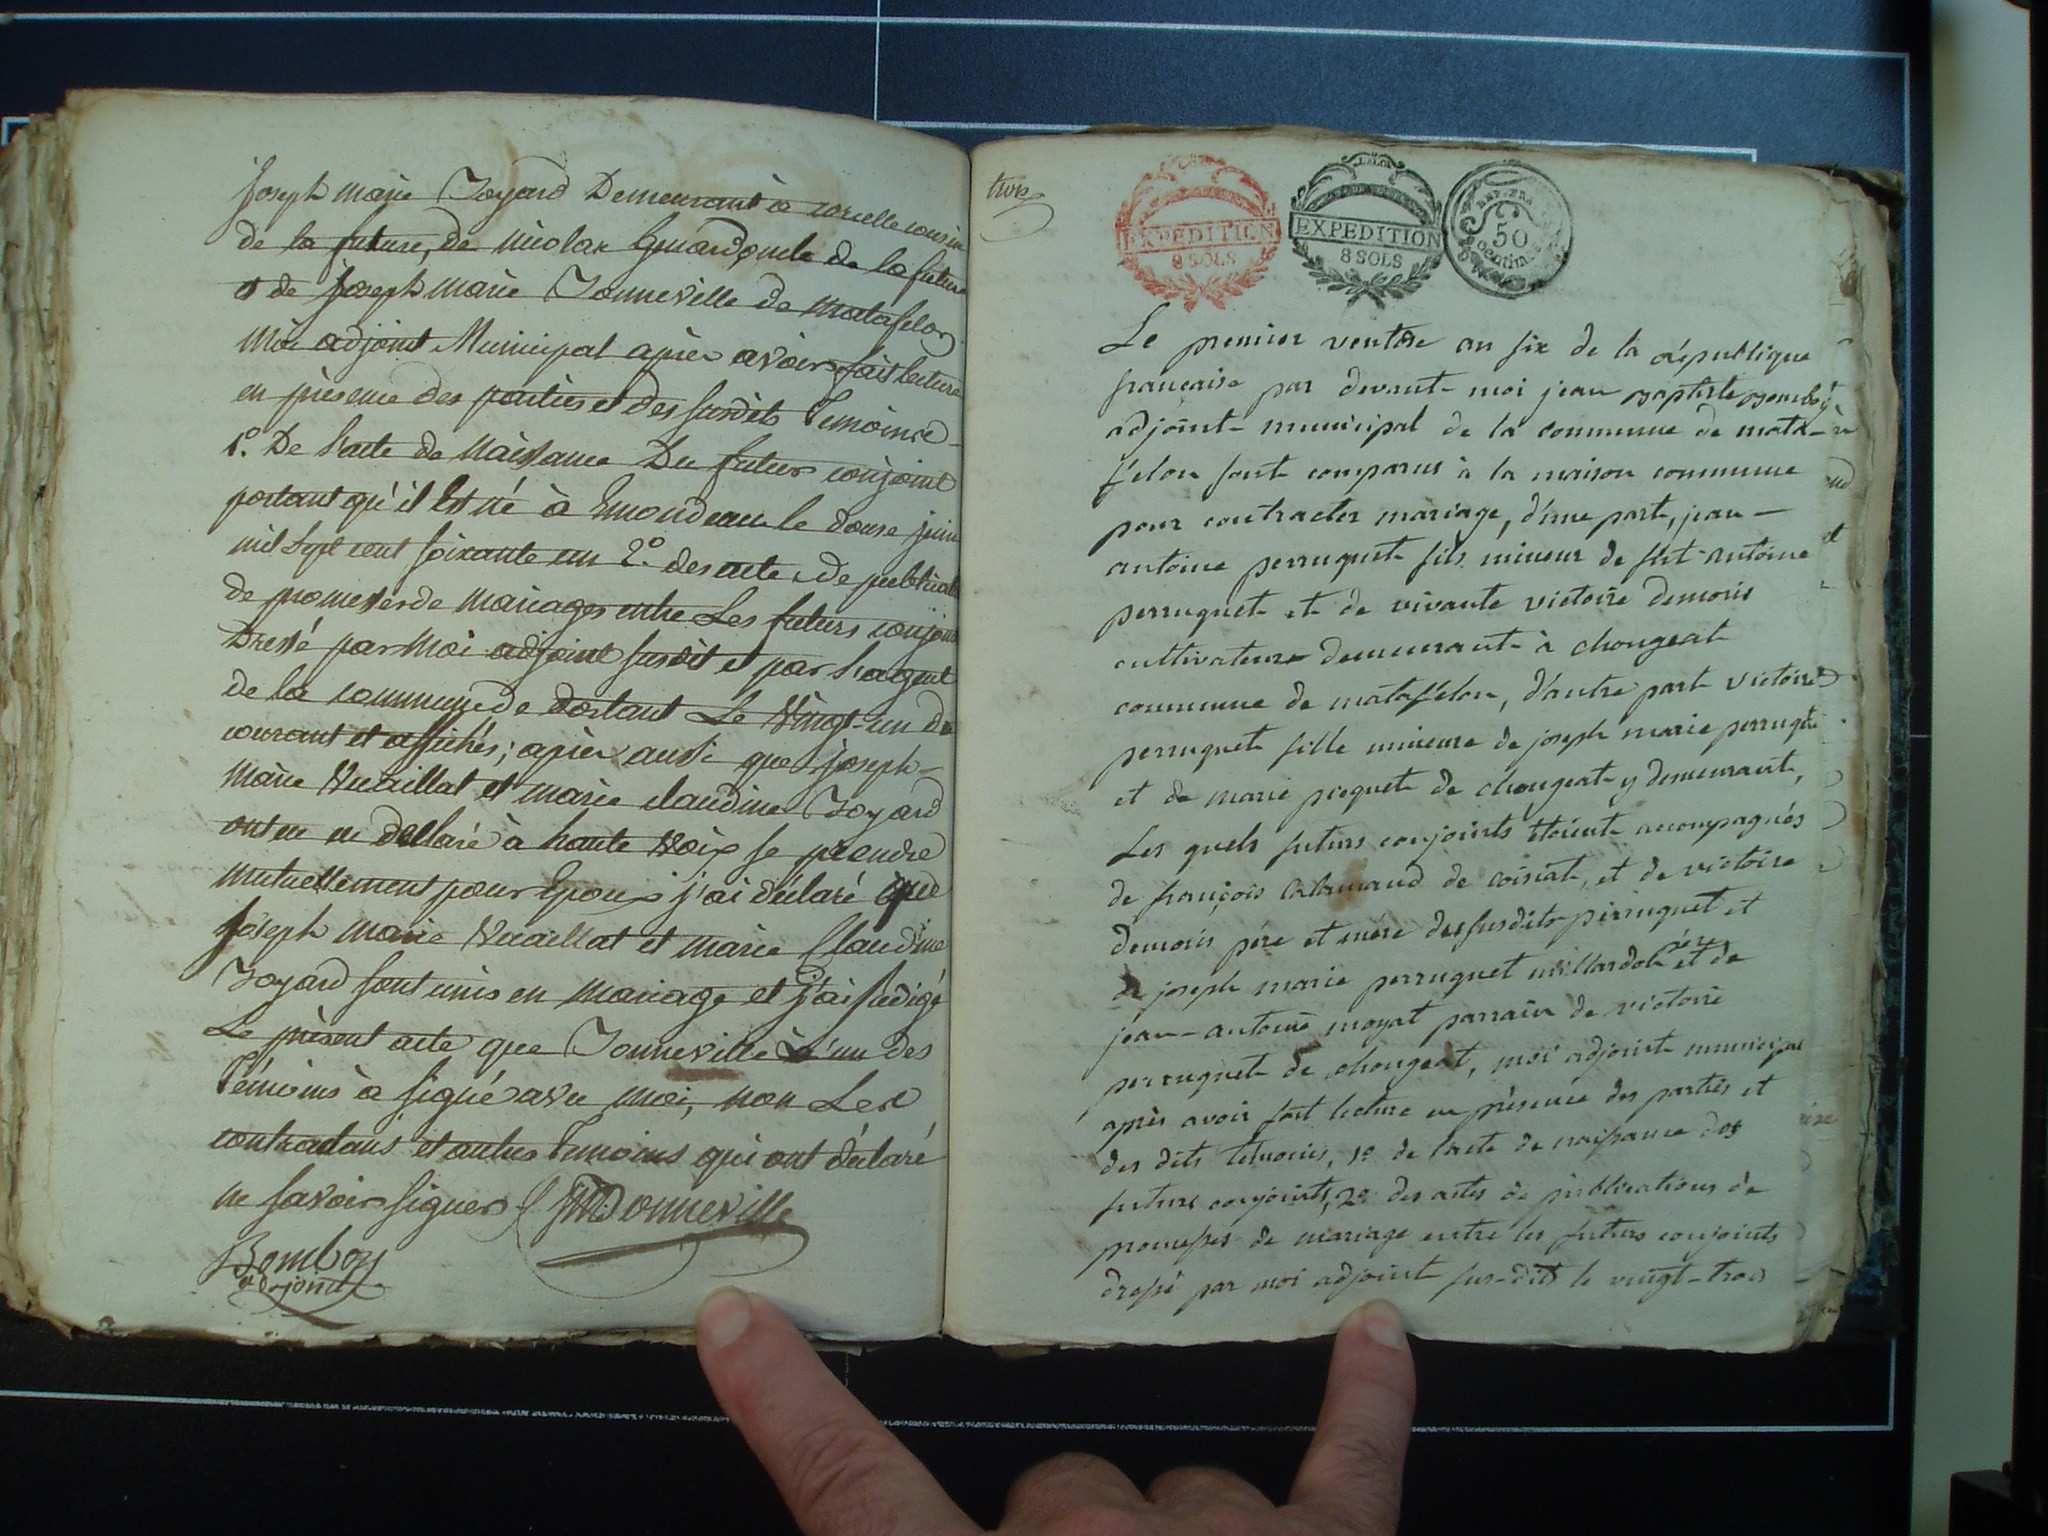 joseph marie Joyard Demeurant à corcelle cousin
de la future, de nicolas oncle de la future
et de joseph marie Jonneville de matafelon
Moi adjoint Municipal apres avoir fait lecture
en presence des parties et des susdits Temoins
1.° De l'acte de Naissance Du futur conjoint
portant qu'il Est né à le douse juin
mil Sept cent soixante un 2.° des actes de publication
de promesses de mariages entre Les futurs conjoints
Dressé par Moi adjoint susdit et par l'agent
de la commune de dortant Le Vingt-un du
courant et affichés; après aussi que joseph-
Marie Vuaillat et marie claudine Joyard
ont déclaré à haute Voix se prendre
mutuellement pour Epoux j'ai déclaré que
Joseph marie Vuaillat et marie Claudine
Joyard sont unis en mariage et j'ai Rédigé
Le present acte que Jonneville L'un des
Témoins à signé avec moi, non Les
contractans et autres Temoins qui ont déclaré
ne savoir signer JMDonneville
Bomboy
adjoint
trois
EXPEDITION
8 SOLS
EXPEDITION
8 SOLS
REP. FRA.
50
centimes
Le premier ventôse an six de la république
francaise par devant moi jean baptiste bomboy
adjoint municipal de la commune de mata-
felon sont comparus à la maison commune
pour contracter mariage, d'une part, jean-
antoine perruquet fils mineur de fut antoine
perruquet et de vivante victoire demoris
cultivateurs demeurant à chougeat
commune de matafelon, d'autre part victoire
perruquet fille mineure de joseph marie perruquet
et de marie proquet de chougeat y demeurant,
Les quels futurs conjoints étoient accompagnés
de françois de coisiat, et de victoire
demoris père et mère des susdits perruquet et
de joseph marie perruquet père et de
jean-antoine moyat parrain de victoire
perruquet de chougeat, moi adjoint municipal
après avoir fait lecture en présence des parties et
des dits témoins, 1° de lacte de naissance des
futurs conjoints, 2° des actes de publications de
promesses de mariage entre les futurs conjoints
dressé par moi adjoint sus-dit le vingt-trois